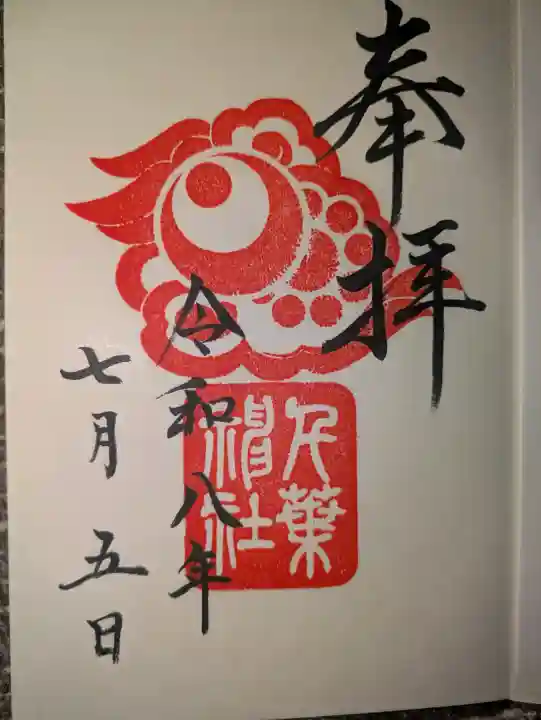 奉拝
千葉
神社
令和八年
七月五日